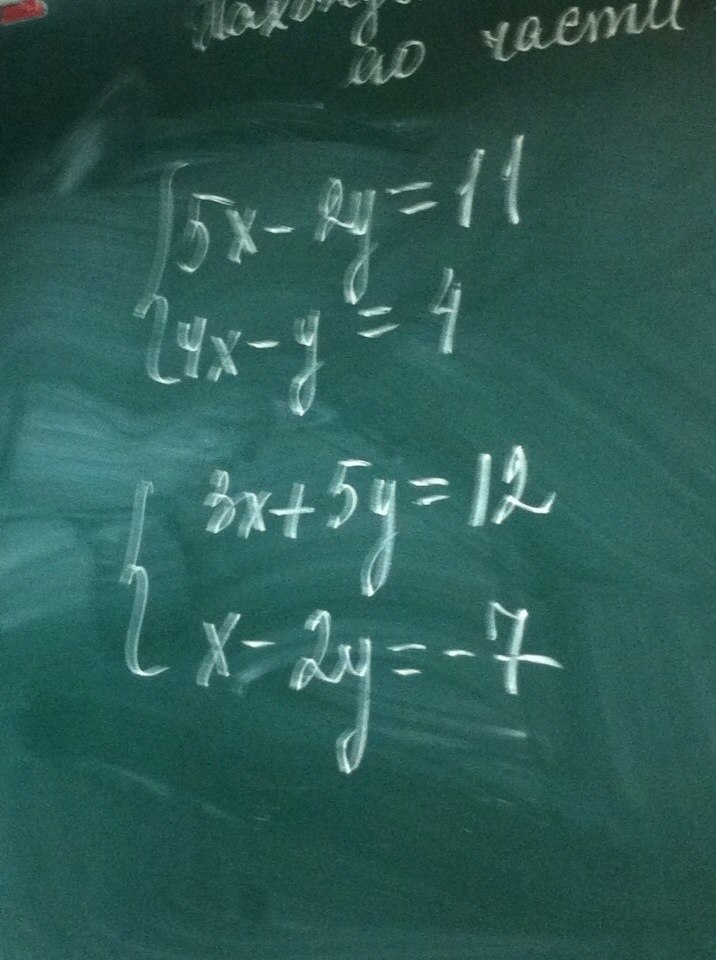 по части
5x - 2y = 11
4x - y = 4
3x + 5y = 12
x - 2y = -7